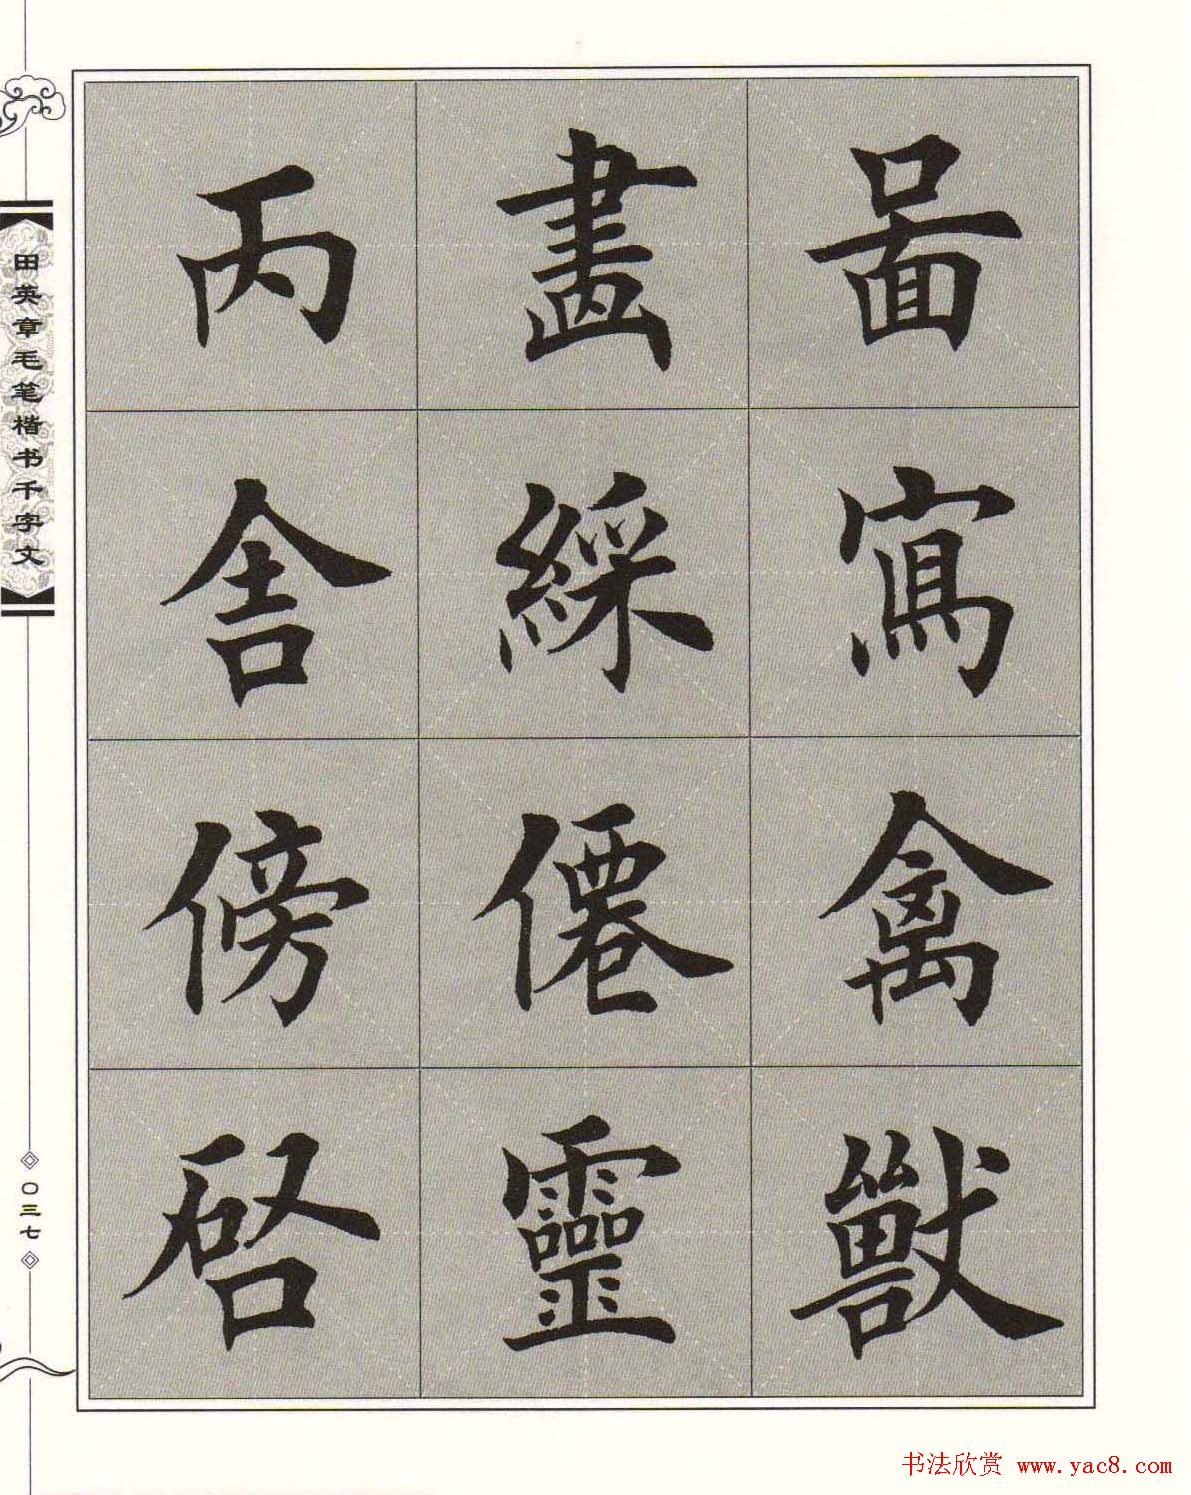 圖寫禽獸
畫綵僊靈
丙舍傍啓
田英章毛笔楷书千字文
〇三七
书法欣赏 www.yac8.com